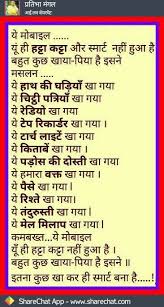 प्रतिभा मंगल
ये मोबाइल ......
यूं ही हट्टा कट्टा और स्मार्ट नहीं हुआ है
बहुत कुछ खाया-पिया है इसने
मसलन .....
ये हाथ की घड़ियाँ खा गया
ये चिट्ठी पत्रियाँ खा गया
ये रेडियो खा गया
ये टेप रिकार्डर खा गया
ये टार्च लाईटें खा गया
ये किताबें खा गया ।
ये पड़ोस की दोस्ती खा गया
ये हमारा वक्त खा गया ।
ये पैसे खा गया ।
ये रिश्ते खा गया।
ये तंदुरुस्ती खा गया ।
ये मेल मिलाप खा गया ।
कमबख्त...ये मोबाइल
यूँ ही हट्टा कट्टा नहीं हुआ है ।
बहुत कुछ खाया-पिया है इसने ॥
इतना कुछ खा कर ही स्मार्ट बना है.....!
ShareChat App - www.sharechat.com